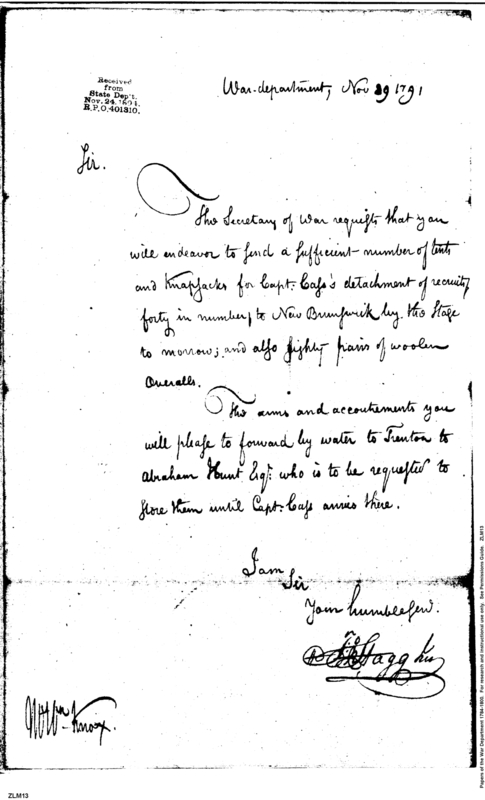 Received
from
State Dep't.
Nov. 24, 1894.
R.P.O. 401310.
War-department, Nov 29 1791
Sir.
The Secretary of War requests that you
will endeavor to send a sufficient number of tents
and Knapsacks for Capt. Cass's detachment of recruits,
forty in number, to New Brunswick by the Stage
to morrow; and also eighty pairs of woolen
Overalls.
The arms and accoutrements you
will please to forward by water to Trenton to
Abraham Hunt Esqr. who is to be requested to
store them until Capt. Cass arrives there.
I am
Sir
Your humble Serv.
Jno Stagg Jun
Mr Wm Knox.
Papers of the War Department 1784-1800. For research and instructional use only. See Permissions Guide. ZLM13
ZLM13